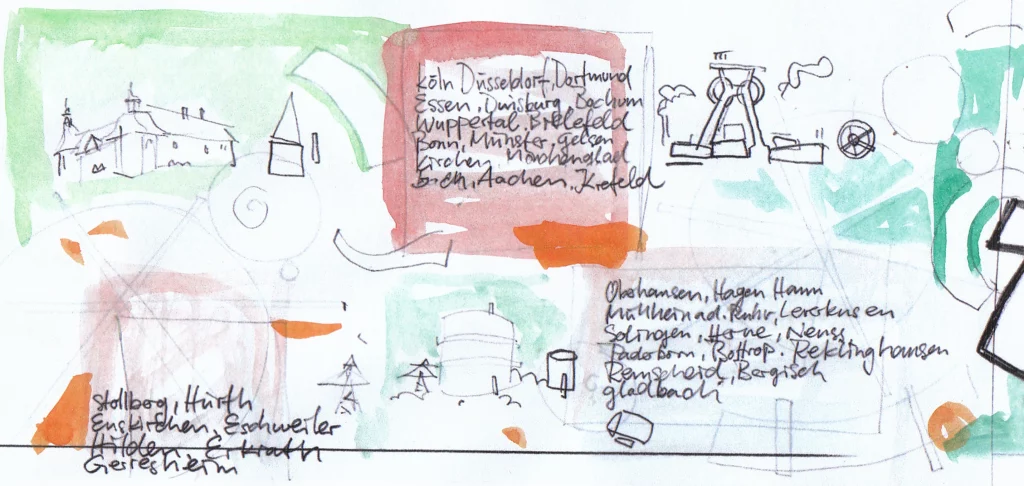 Köln Düsseldorf, Dortmund
Essen, Duisburg, Bochum
Wuppertal, Bielefeld
Bonn, Münster, gelsen
kirchen, Mönchenglad
bach, Aachen, Krefeld
Oberhausen, Hagen Hamm
Mülheim a.d. Ruhr, Leverkusen
Solingen, Herne, Neuss,
Paderborn, Bottrop. Recklinghausen
Remscheid, Bergisch
gladbach
Stollberg, Hürth
Euskirchen, Eschweiler
Hilden, Erkrath
Gerresheim